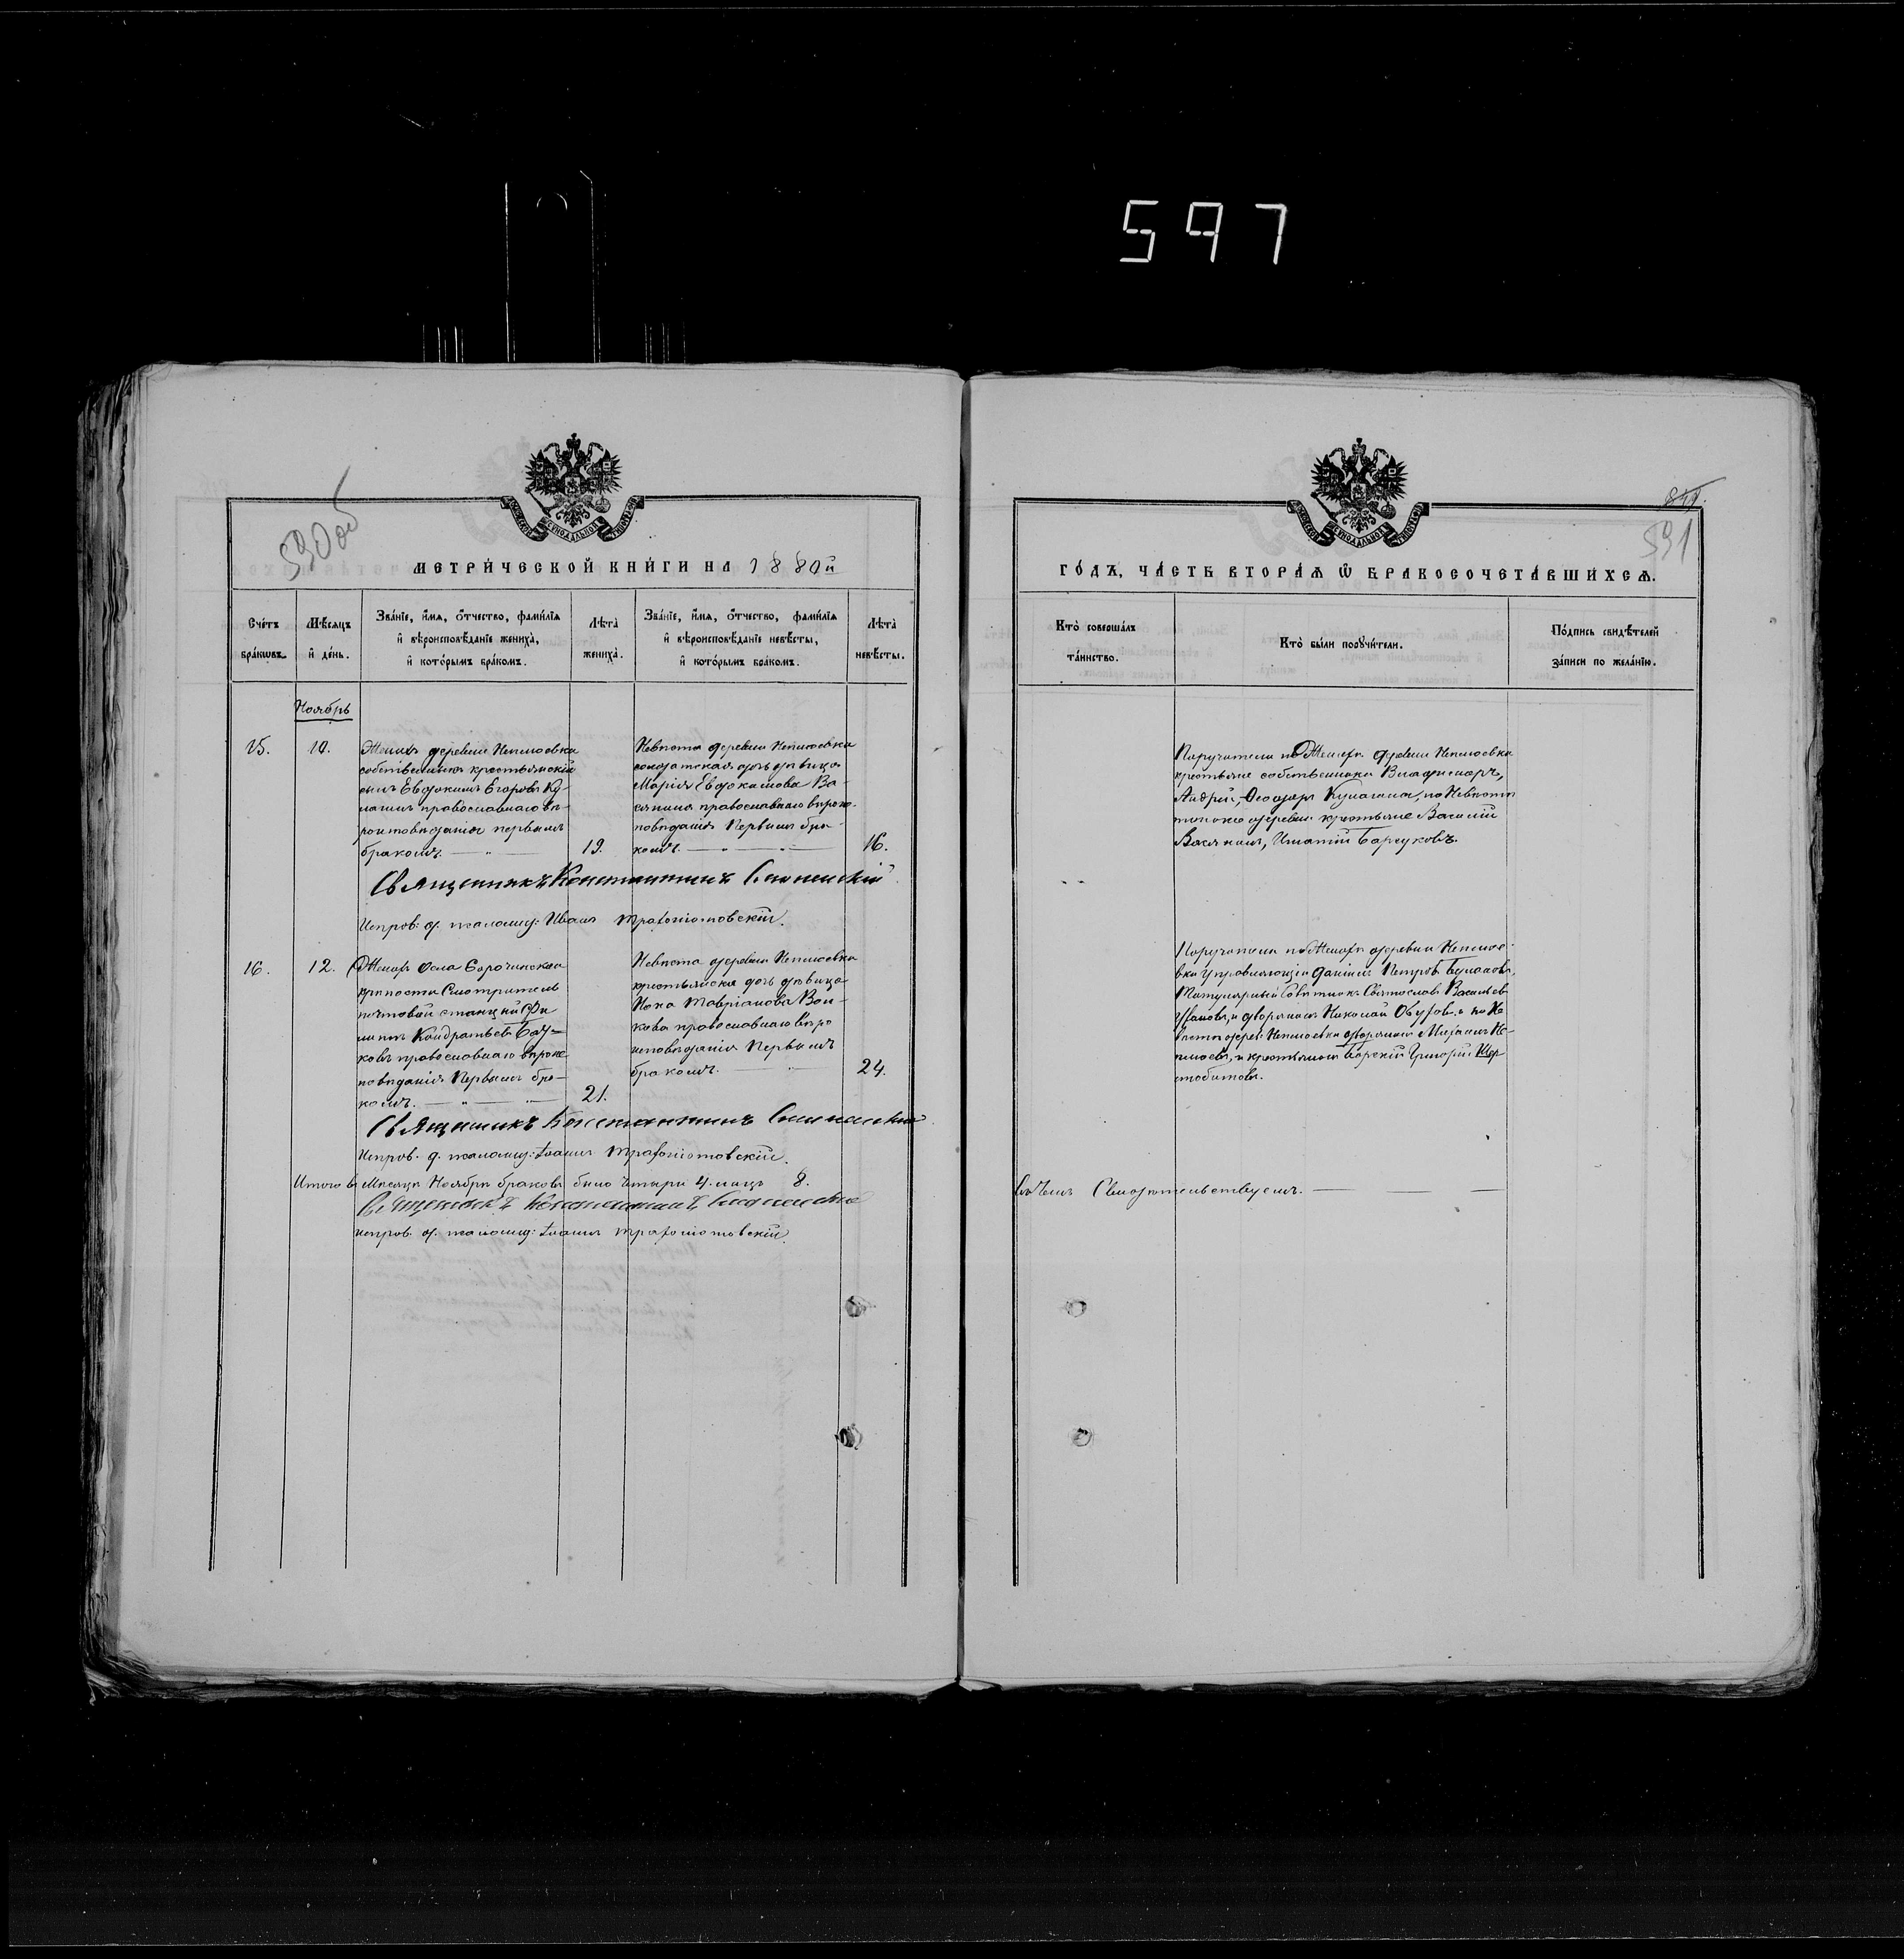 597
590об
МЕТРИ́ЧЕСКОЙ КНИ́ГИ НА 1880й
Сче́тъ бра́ковъ.
Мѣ́сяцъ и де́нь.
Зва́нїе, и́мя, о́тчество, фами́лїя и вѣроисповѣ́данїе жениха̀, и кото́рымъ бра́комъ.
Лѣта̀ жениха̀.
Зва́нїе, и́мя, о́тчество, фами́лїя и вѣроисповѣ́данїе невѣ́сты, и кото́рымъ бра́комъ.
Лѣта̀ невѣ́сты.
Ноябрь
15.
10.
Женихъ деревни Неплюевки
собственникъ крестьянскій
сынъ Евдокимъ Егоровъ Ку-
лагинъ православнаго вѣ-
роисповѣданія первымъ
бракомъ.
19.
Невѣста деревни Неплюевки
солдатская дочь дѣвица
Марія Евдокимова Ва-
сянина православнаго вѣроис-
повѣданія Первымъ бра-
комъ.
16.
Священникъ Константинъ
Исправ. д. псаломщ: Иванъ
16.
12.
Женихъ села Сорочинской
крѣпости Смотритель
почтовой станціи Фи
липпъ Кондратьевъ
ковъ православнаго вѣроис
повѣданія Первымъ бра-
комъ.
21.
Невѣста деревни Неплюевки
крестьянская дочь дѣвица
Таврі​анова Вол-
кова православнаго вѣро
исповѣданія Первымъ
бракомъ.
24.
Священникъ Константинъ
Исправ. д. псаломщ: Іоаннъ
Итого въ Мѣсяцѣ Ноябрѣ браковъ было четыре 4. лицъ 8.
Священникъ Константинъ
исправ. д. псаломщ: Іоаннъ
591
ГО́ДЪ, ЧА́СТЬ ВТОРА́Я Ѡ БРАКОСОЧЕТА́ВШИХСЯ.
Кто̀ соверша́лъ та́инство.
Кто̀ бы́ли порꙋчи́тели.
По́дпись свидѣ́телей за́писи по жела́нїю.
Поручители по Женихѣ деревни Неплюевки
крестьяне собственники Владимиръ,
Андрей, Ѳеодоръ Кулагины, по Невѣстѣ
той же деревни крестьяне Василій
Васянинъ, Игнатій Барсуковъ.
Поручители по Женихѣ деревни Неплюе-
вки управляющій Даніилъ Петровъ
Титулярный Совѣтникъ Святославъ Васильевъ
Ивановъ, и дворянинъ Николай Обуховъ. и по Не
вѣстѣ дерев: Неплюевки дворянинъ Михаилъ Не-
плюевъ, и крестьянинъ Борскій Григорій Шер
стобитовъ.
въ чемъ Свидѣтельствуемъ.